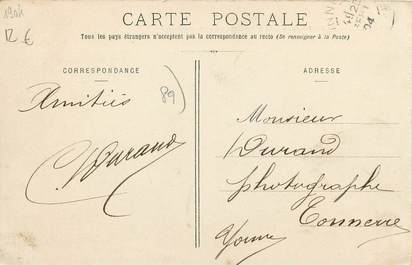 1904
12 €
CARTE POSTALE
Tous les pays étrangers n'acceptent pas la correspondance au recto (Se renseigner à la Poste)
CORRESPONDANCE
ADRESSE
Amitiés
89
C. Durand
Monsieur
Durand
photographe
Tonnerre
Yonne